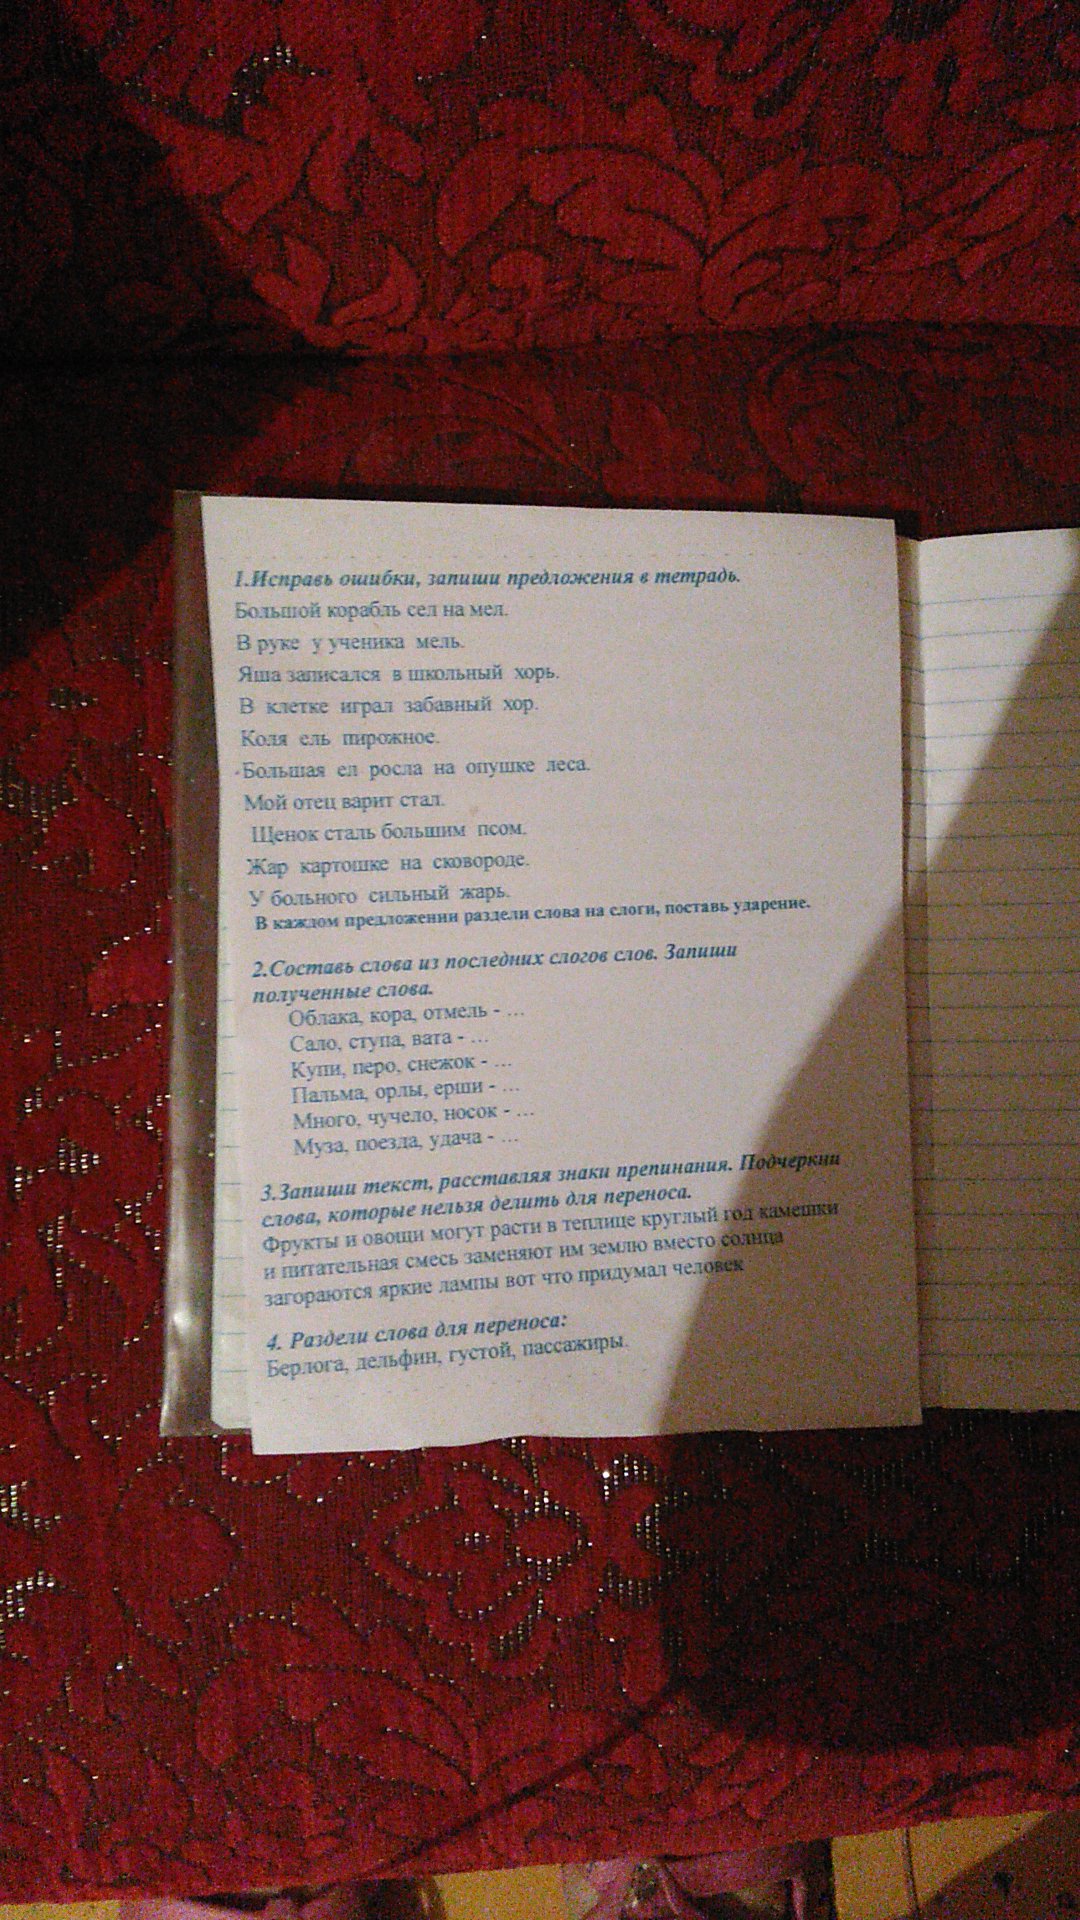 1.Исправь ошибки, запиши предложения в тетрадь.
Большой корабль сел на мел.
В руке у ученика мель.
Яша записался в школьный хорь.
В клетке играл забавный хор.
Коля ель пирожное.
Большая ел росла на опушке леса.
Мой отец варит стал.
Щенок сталь большим псом.
Жар картошке на сковороде.
У больного сильный жарь.
В каждом предложении раздели слова на слоги, поставь ударение.
2.Составь слова из последних слогов слов. Запиши
полученные слова.
Облака, кора, отмель - ...
Сало, ступа, вата - ...
Купи, перо, снежок - ...
Пальма, орлы, ерши - ...
Много, чучело, носок - ...
Муза, поезда, удача - ...
3.Запиши текст, расставляя знаки препинания. Подчеркни
слова, которые нельзя делить для переноса.
Фрукты и овощи могут расти в теплице круглый год камешки
и питательная смесь заменяют им землю вместо солнца
загораются яркие лампы вот что придумал человек
4. Раздели слова для переноса:
Берлога, дельфин, густой, пассажиры.